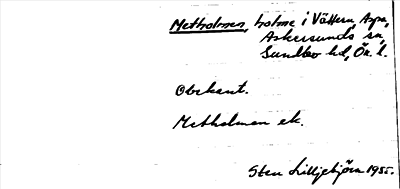 Metholmen, holme i Vättern, Aspa,
Askersunds sn,
Sundbo hd, Ör. l.
Obekant.
Metholmen ek.
Sten Lilljebjörn 1955.